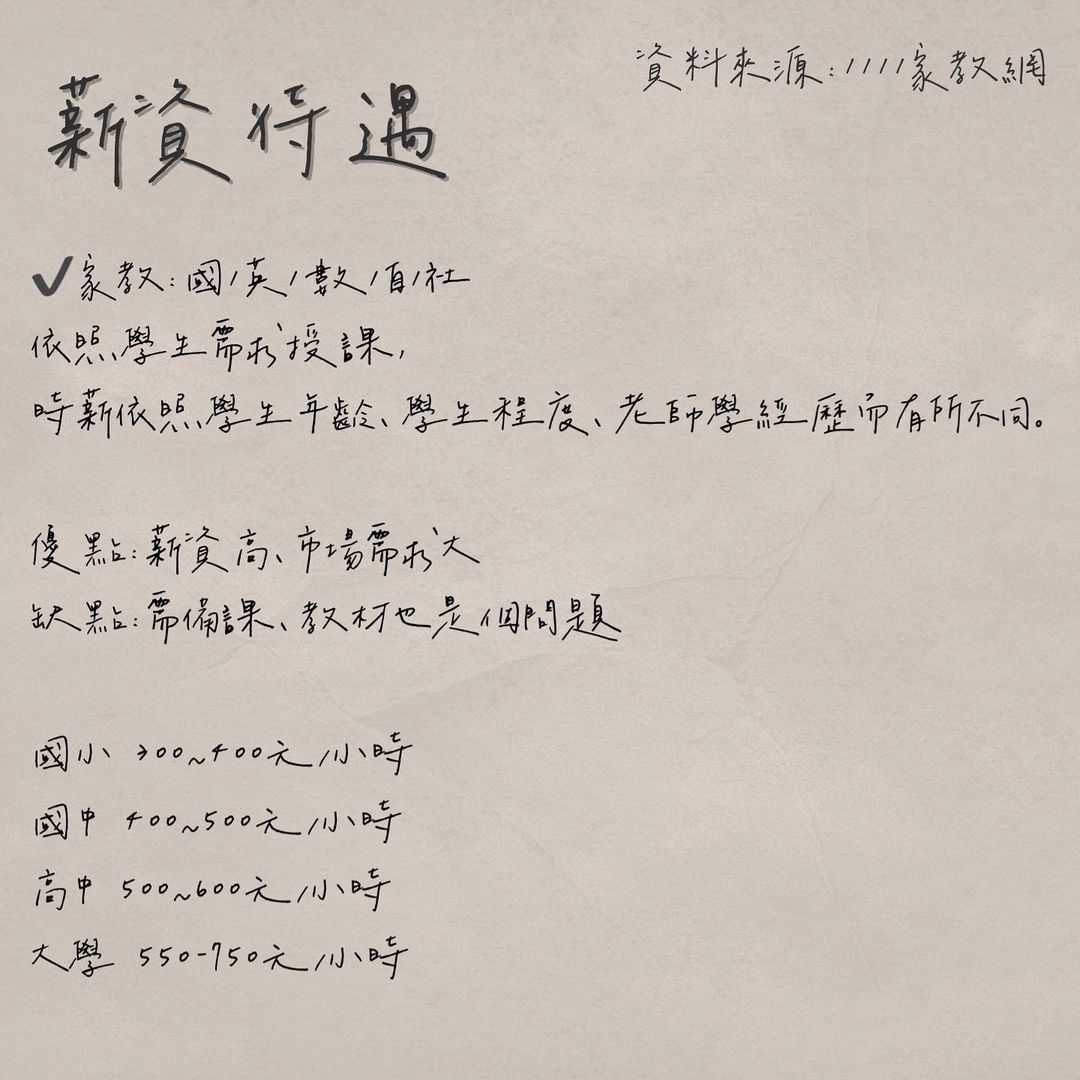 資料來源:1111家教網
薪資待遇
✓家教:國/英/數/自/社
依照學生需求授課,
時薪依照學生年齡、學生程度、老師學經歷而有所不同。
優點:薪資高、市場需求大
缺點:需備課、教材也是個問題
國小 300~400元/小時
國中 400~500元/小時
高中 500~600元/小時
大學 550-750元/小時